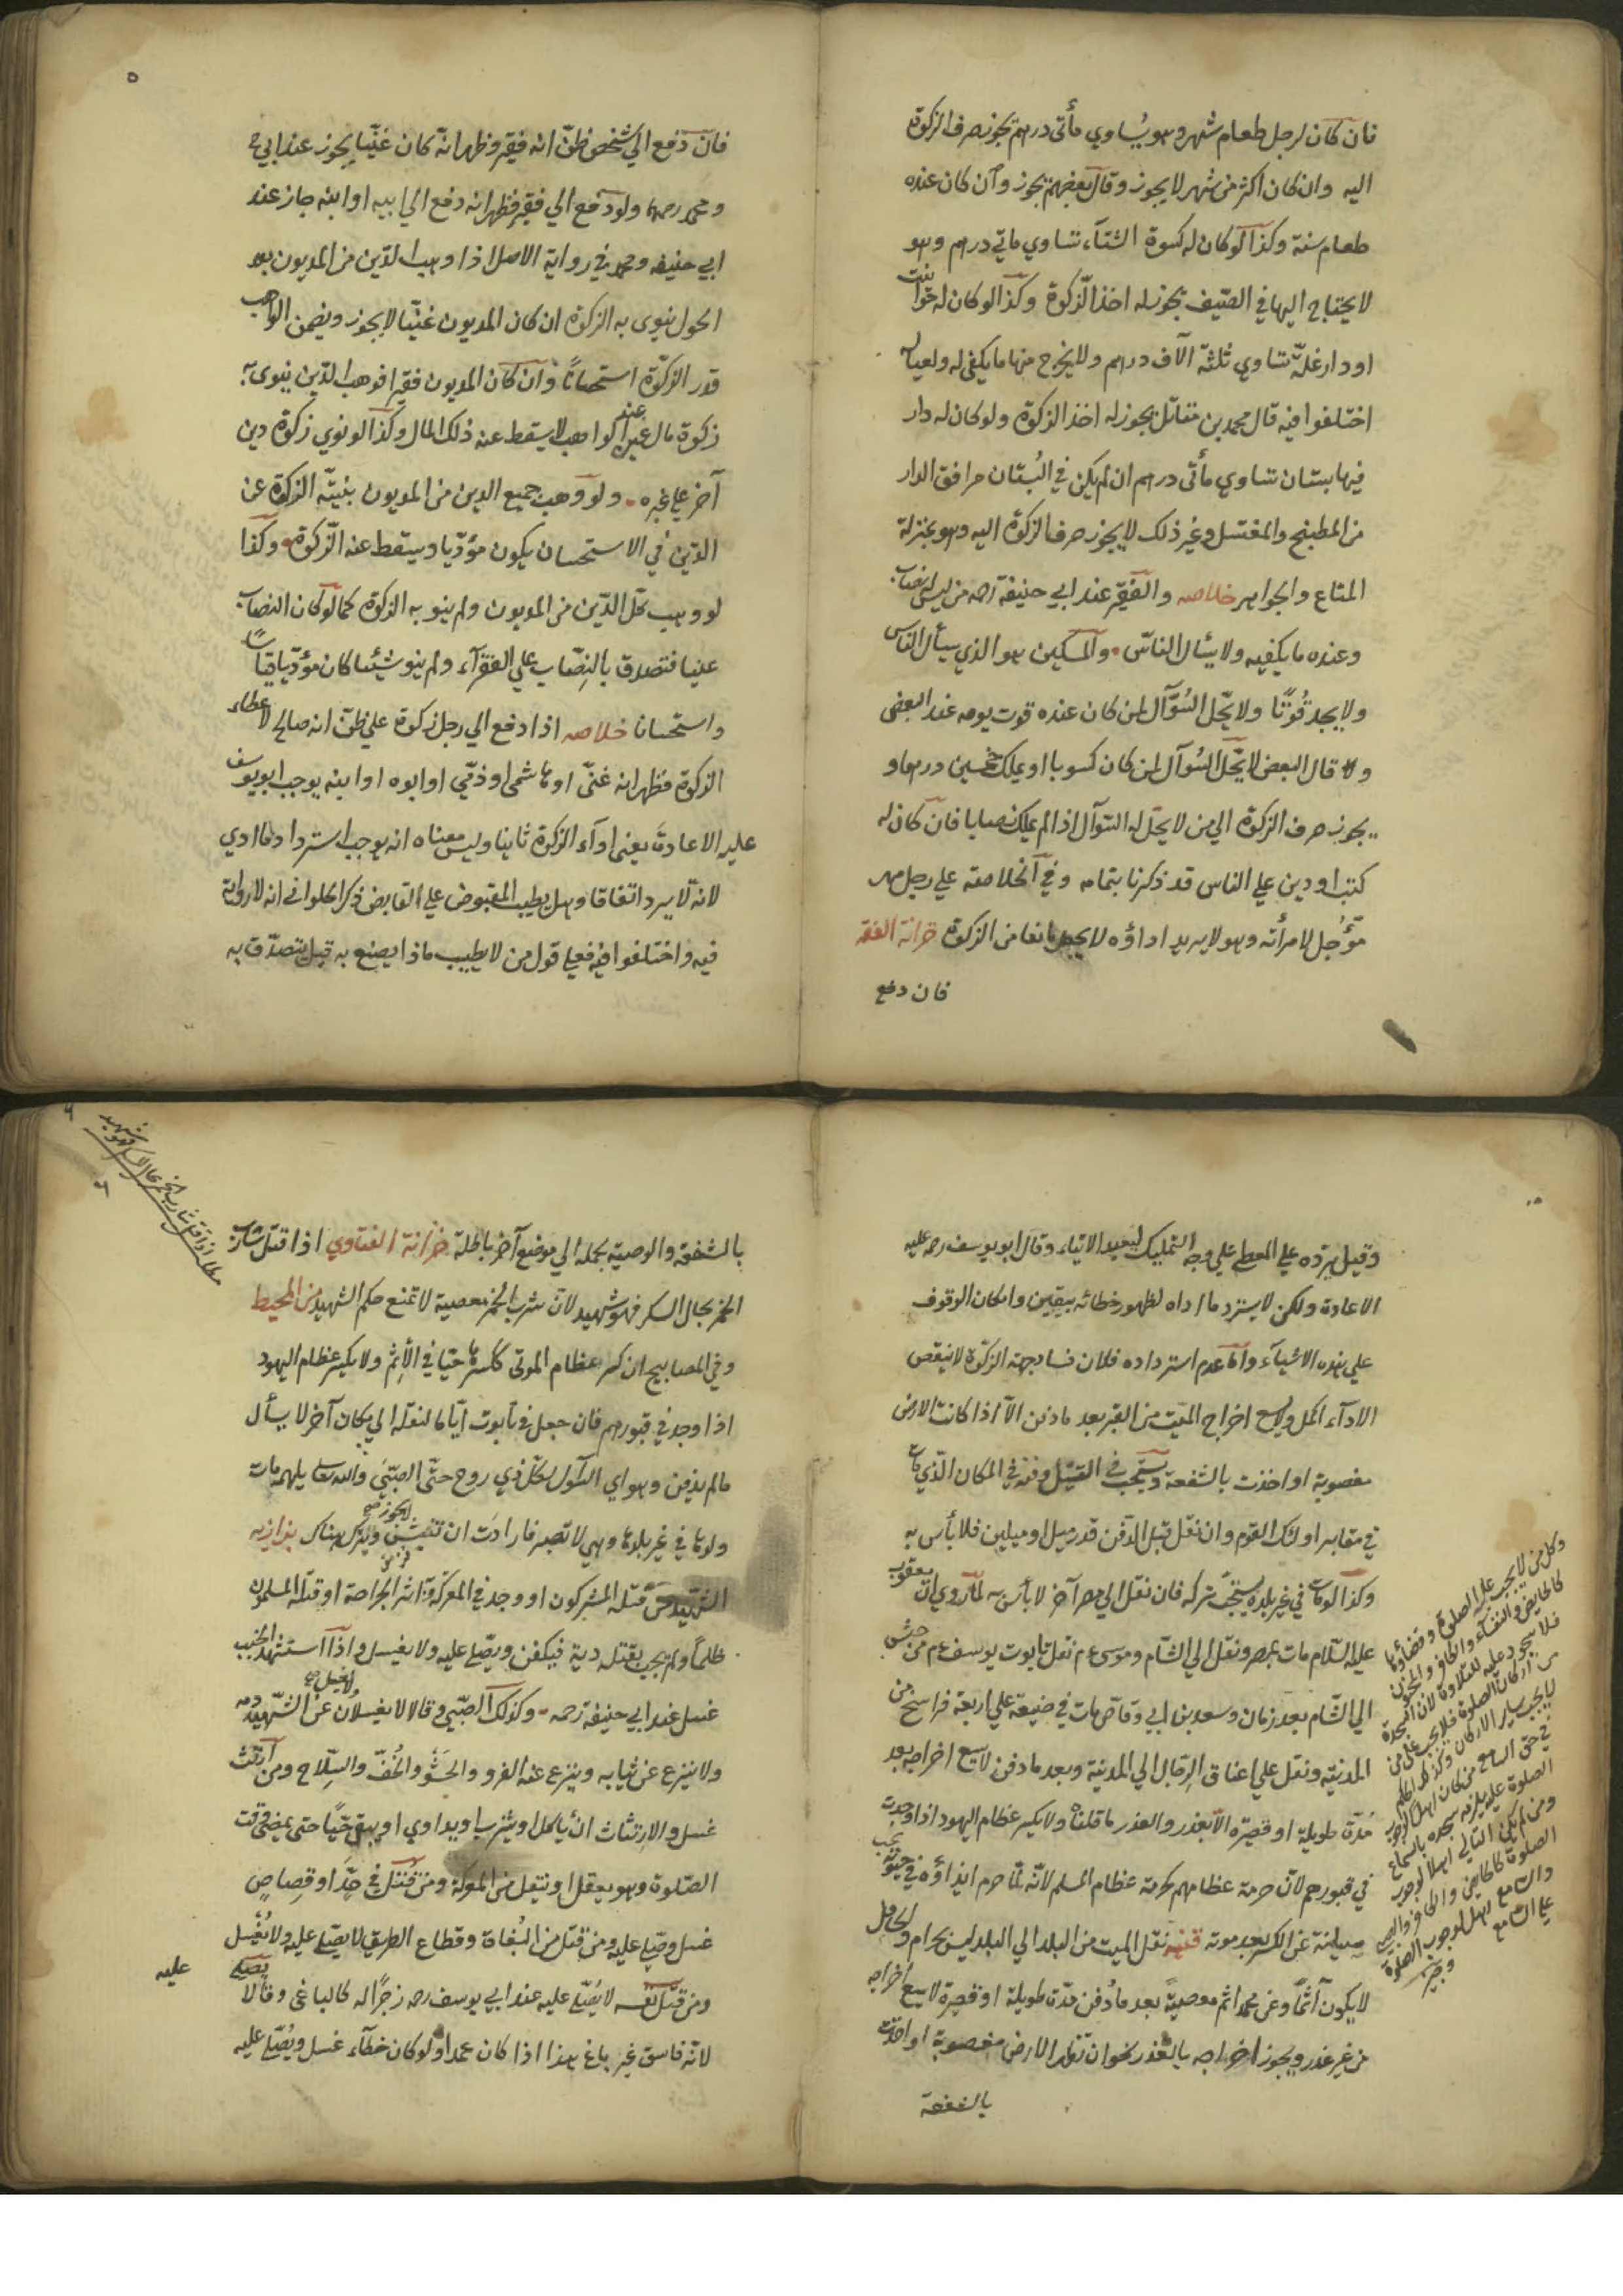 فان كان لرجل طعام شهر وهو يساوي مأتى درهم يجوز صرف الزكوة
اليه وان كان اكثر من شهر لا يجوز وقال بعضهم يجوز وان كان عنده
طعام سنة وكذا لو كان له كسوة الشتاء تساوي ماتي درهم وهو
لا يحتاج اليها في الصيف يجوز له اخذ الزكوة وكذا لو كان له حوانيت
او دار غلة تساوي ثلثة آلاف درهم ولا يخرج منها ما يكفى له ولعياله
اختلفوا فيه قال محمد بن مقاتل يجوز له اخذ الزكوة ولو كان له دار
فيها بستان تساوي مأتى درهم ان لم يكن في البستان مرافق الدار
من المطبخ والمغتسل وغير ذلك لا يجوز صرف الزكوة اليه وهو بمنزلة
المتاع والجواهر خلاصه والفقير عند ابي حنيفة رحمه من ليس له نصاب
وعنده ما يكفيه ولا يسئال الناس والمسكين هو الذي يسأل الناس
ولا يجد قوتا ولا يحل السؤال لمن كان عنده قوت يومه عند البعض
وقال البعض لا يحل السؤال لمن كان كسوبا او يملك خمسين درهما و
يجوز صرف الزكوة الى من لا يحل له السؤال اذا لم يملك نصابا فان كان له
كتب او دين علي الناس قد ذكرنا بتمامه وفي الخلاصة علي رجل مهر
مؤجل لامرأته وهو لا يريد اداؤه لا يجعل مانعا من الزكوة خزانة الفقه
فان دفع
٥
فان دفع الي شخص ظن انه فقير وظهر انه كان غنيا يجوز عند ابي ح
ومحمد رحمهما ولو دفع الي فقير فظهر انه دفع الي ابيه او ابنه جاز عند
ابي حنيفه ومحمد في رواية الاصل اذا وهب الدين من المديون بعد
الحول ينوى به الزكوة ان كان المديون غنيا لا يجوز ويضمن الواهب
قدر الزكوة استحسانا وان كان المديون فقيرا فوهب الدين ينوى به
زكوة مال عين عنده او لا يسقط عنه ذلك المال وكذا لو نوي زكوة دين
آخر علي غيره ولو وهب جميع الدين من المديون بنية الزكوة عن
الدين في الاستحسان يكون مؤديا ويسقط عنه الزكوة وكذا
لو وهب كل الدين من المديون ولم ينو به الزكوة كما لو كان النصاب
عينا فتصدق بالنصاب علي الفقراء ولم ينو شيئا كان مؤديا قياسا
واستحسانا خلاصه اذا دفع الي رجل زكوة علي ظن انه صالح لاعطاء
الزكوة فظهر انه غنى او هاشمى او ذمى او ابوه او ابنه يوجب ابو يوسف
عليه الاعادة يعنى اداء الزكوة ثانيا وليس معناه انه يوجب استرداد ما ادي
لانه لا يرد اتفاقا وهل يطيب المقبوض علي القابض ذكر الحلواني انه لا رواية
فيه واختلفوا فيه فعلي قول من لا يطيب ماذا يصنع به قيل يتصدق به
وقيل يرده علي المعطي علي وجه التمليك ليعيد الايتاء وقال ابو يوسف رحمه عليه
الاعادة ولكن لا يسترد ما اداه لظهور خطائه بيقين وامكان الوقوف
علي هذه الاشياء واما عدم استرداده فلان فساد جهة الزكوة لا ينقص
الاداء اكمل ولا يسع اخراج الميت من القبر بعد ما دفن الا اذا كانت الارض
مغصوبة او اخذت بالشفعة ويستحب في القتيل دفنه في المكان الذي مات
في مقابر اولئك القوم وان نقل قبل الدفن قدر ميل او ميلين فلا بأس به
وكذا لو مات في غير بلده يستحب تركه فان نقل الى مصر آخر لا بأس به لما روي ان يعقوب
عليه السلام مات بمصر ونقل الي الشام وموسى عم نقل تابوت يوسف عم من
الي الشام بعد زمان وسعد بن ابي وقاص مات في ضيعة علي اربعة فراسخ من
المدينة ونقل علي اعناق الرجال الي المدينة وبعد ما دفن لا يسع اخراجه بعد
مدة طويلة او قصيرة الا بعذر والعذر ما قلناه ولا يكسر عظام اليهود اذا وجدت
في قبورهم لان حرمة عظامهم كحرمة عظام المسلم لانه لما حرم ايذاؤه في حيوته يجب
صيانته عن الكسر بعد موته قنيه نقل الميت من البلد الي البلد ليس بحرام والحامل
لا يكون آثما وعن محمد اثم معصية بعد ما دفن مدة طويلة او قصيرة لا يسع اخراجه
من غير عذر ويجوز اخراجه بالعذر نحو ان تظهر الارض مغصوبة او اخذت
بالشفعة
وكل من لا يجب عليه الصلوة وقضاؤها
كالحايض والنفساء والكافر والمجنون
فلا سجود عليه للتلاوة لان السجدة
من اركان الصلوة فلا يجب على من
لا يجب ساير الاركان وكذلك الحكم
في حق السامع من كان اهلا لوجوب
الصلوة عليه يلزمه سجده بالسماع
ومن لم يكن التالي اهلا لوجوب
الصلوة كالحايض والكافر والصبي
والسامع اهل لوجوب الصلوة
على السامع
وجيز
٦
مطلب اذا قتل شارب الخمر بحال السكر فهو شهيد
بالشفعة والوصية بحمله الي موضع آخر باطلة خزانة الفتاوي اذا قتل شارب
الخمر بحال السكر فهو شهيد لان شرب الخمر معصية لا تمنع حكم الشهيد من المحيط
وفي المصابيح ان كسر عظام الموتى ككسرها حيا في الاثم ولا يكسر عظام اليهود
اذا وجد في قبورهم فان جعل في تابوت اياما لنقله الي مكان آخر لا يسأل
ما لم يدفن وهو اي السؤال لكل ذي روح حتى الصبي والله تعا يلهمه مات
ولدها في غير بلدها وهي لا تصبر فارادت ان تنبش لا يجوز ويترك هناك بزازيه
الشهيد من قتله المشركون او وجد في المعركة وبه اثر الجراحة او قتله المسلمون
ظلما ولم يجب بقتله دية فيكفن ويصلي عليه ولا يغسل واذا استشهد الجنب
غسل عند ابي حنيفة رحمه وكذلك الصبي وقالا لا يغسلان لا يغسل عن الشهيد دمه
ولا ينزع عن ثيابه وينزع عنه الفرو والحشو والخف والسلاح ومن ارتث
غسل والارتثاث ان يأكل او يشرب او يداوي او يبقى حيا حتى يمضى وقت
الصلوة وهو يعقل او ينقل من المعركة ومن قتل في حد او قصاص
غسل وصلي عليه ومن قتل من البغاة وقطاع الطريق لا يصلي عليه ولا يغسل
ومن قتل نفسه لا يصلي عليه عند ابي يوسف رحمه زجرا له كالباغى وقالا يصلي عليه
لانه فاسق غير باغ هذا اذا كان عمدا ولو كان خطاء غسل ويصلي عليه